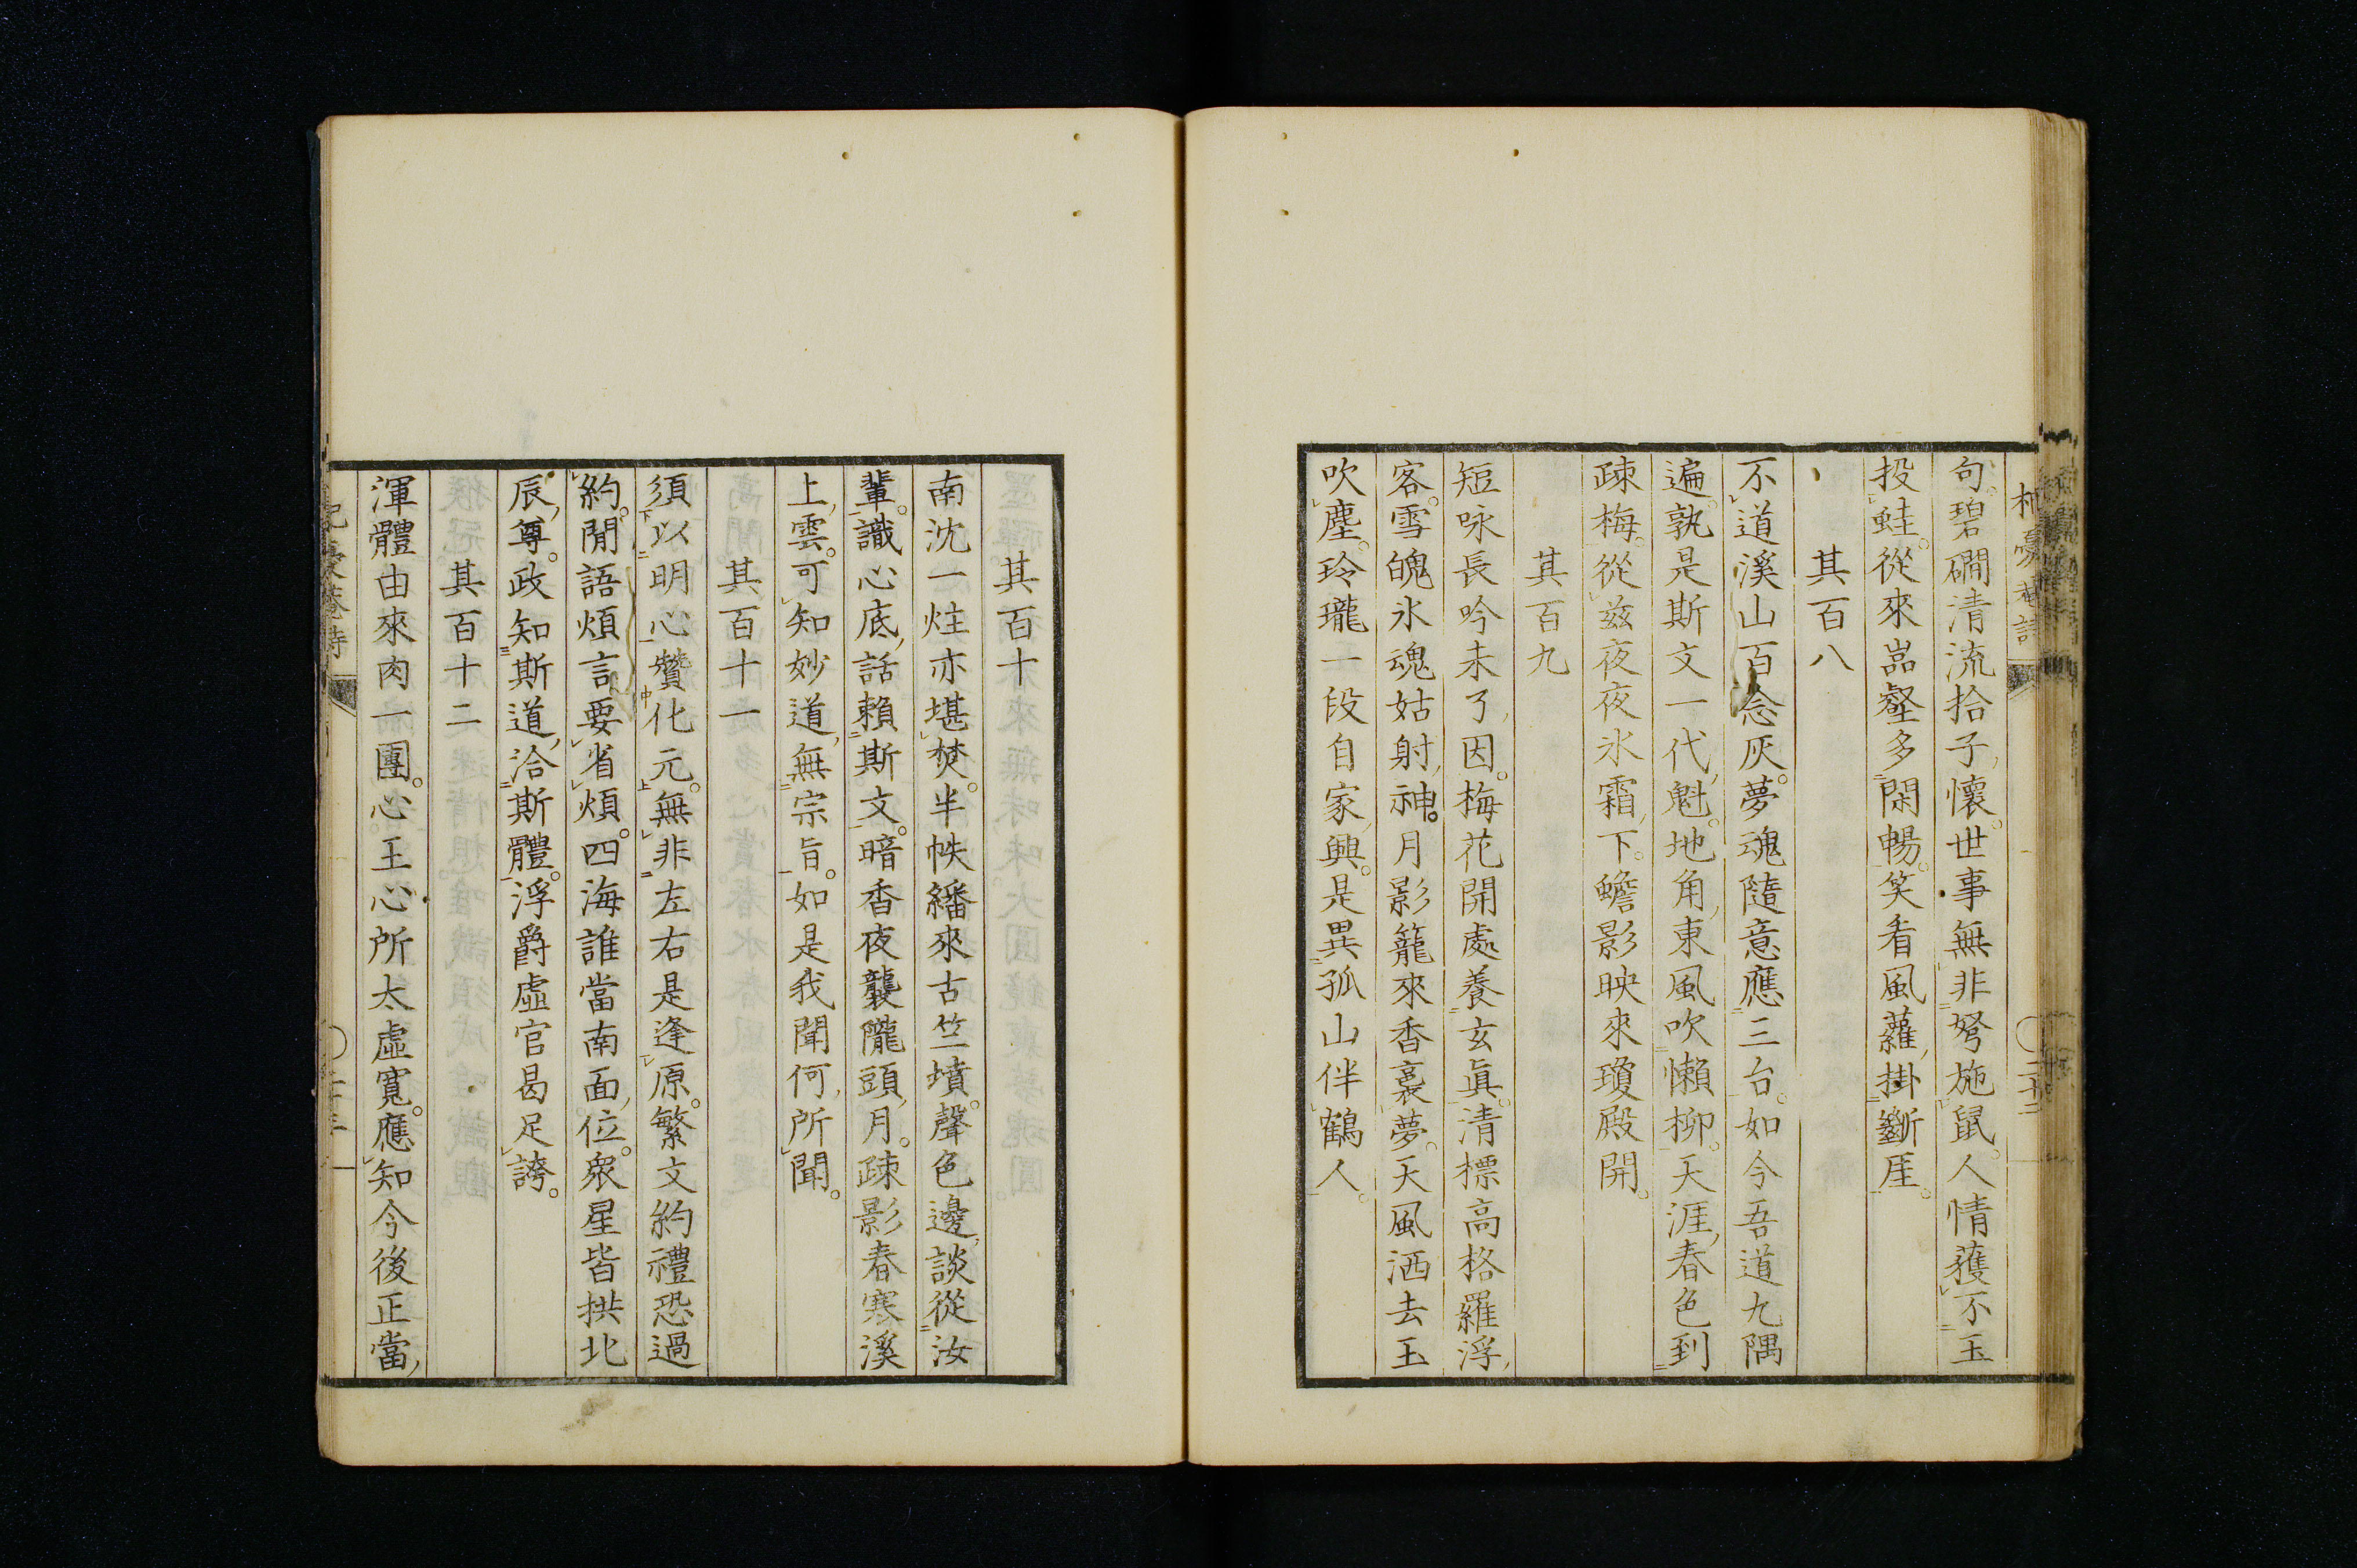 句。碧磵清流拾子懷。世事無非弩施鼠。人情蒦不玉
投蛙。從來嵓壑多閑暢。笑看風蘿掛斷厓。
其百八
不道溪山百念灰。夢魂隨意應三台。如今吾道九隅
遍。孰是斯文一代魁。地角東風吹懶柳。天涯春色到
疎梅。從茲夜夜氷霜下。蟾影映來瓊殿開。
其百九
短咏長吟未了因。梅花開處養玄眞。清標高格羅浮
客。雪魄氷魂姑射神。月影籠來香裏夢。天風洒去玉
吹塵。玲瓏一段自家興。是異孤山伴鶴人。
其百十
南沈一炷亦堪焚。半帙繙來古竺墳。聲色邊談從汝
輩。識心底話賴斯文。暗香夜襲隴頭月。疎影春寒溪
上雲。可知妙道無宗旨。如是我聞何所聞。
其百十一
須以明心贊化元。無非左右是逢原。繁文約禮恐過
約。閒語煩言要省煩。四海誰當南面位。衆星皆拱北
辰尊。政知斯道洽斯體。浮爵虛官曷足誇。
其百十二
渾體由來肉一團。心王心所太虛寬。應知今後正當